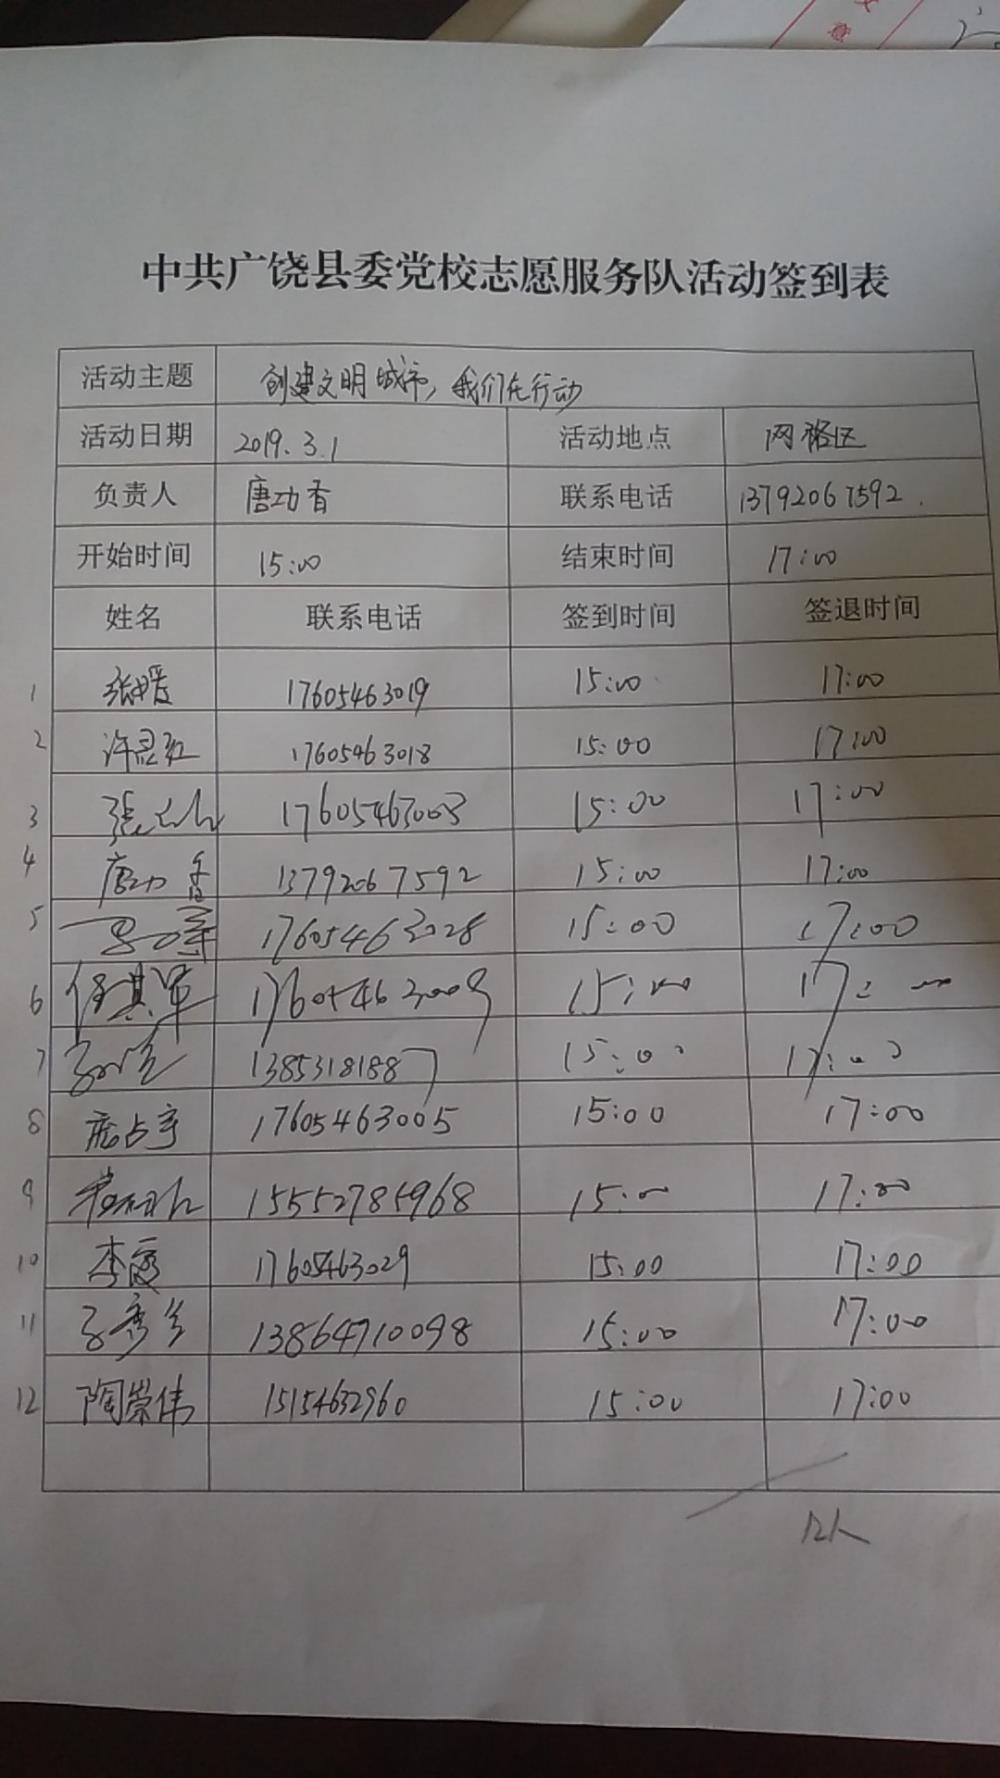 中共广饶县委党校志愿服务队活动签到表
活动主题 创建文明城市，我们在行动
活动日期 2019.3.1 活动地点 网格区
负责人 唐功香 联系电话 13792067592
开始时间 15:00 结束时间 17:00
姓名 联系电话 签到时间 签退时间
1 张暖 17605463019 15:00 17:00
2 许昆红 17605463018 15:00 17:00
3 张 17605463003 15:00 17:00
4 唐功香 13792067592 15:00 17:00
5 17605463028 15:00 17:00
6 任其军 17605463009 15:00 17:00
7 13853181887 15:00 17:00
8 庞占宇 17605463005 15:00 17:00
9 15552785968 15:00 17:00
10 李霞 17605463029 15:00 17:00
11 13864710098 15:00 17:00
12 陶崇伟 15154632960 15:00 17:00
12人